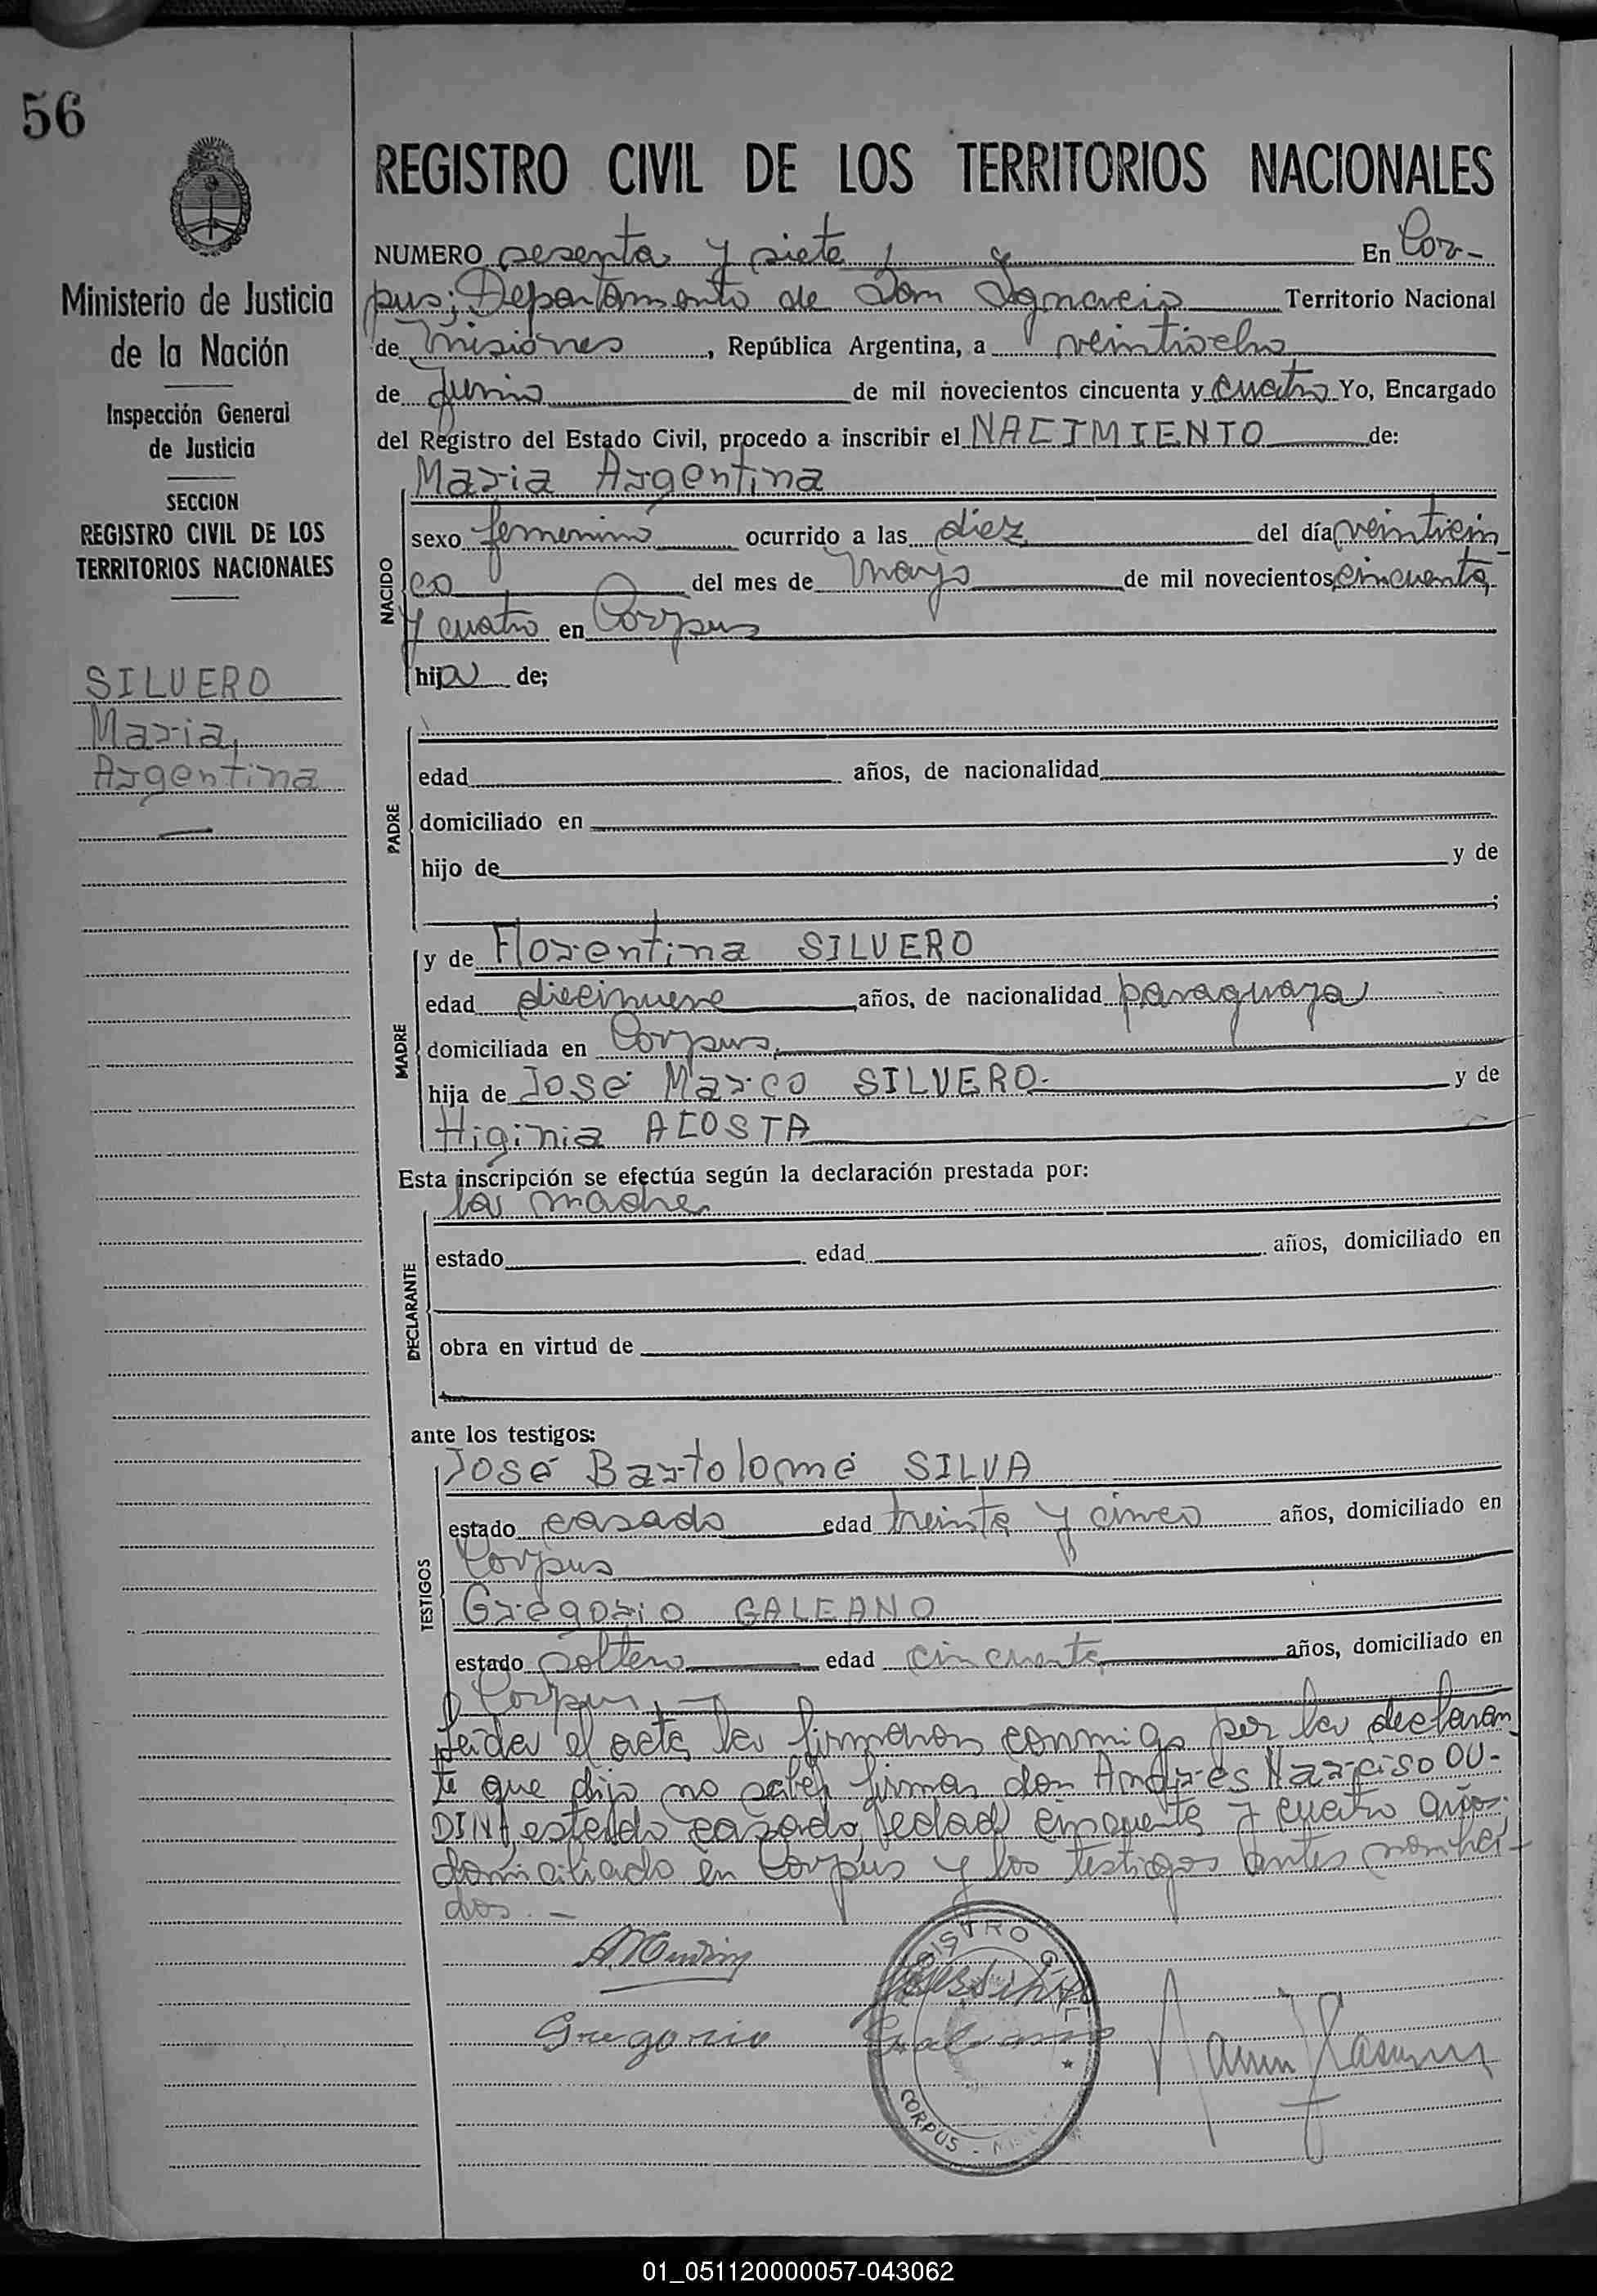 56
Ministerio de Justicia
de la Nación
Inspección General
de Justicia
SECCION
REGISTRO CIVIL DE LOS
TERRITORIOS NACIONALES
SILVERO
Maria
Argentina
REGISTRO CIVIL DE LOS TERRITORIOS NACIONALES
NUMERO sesenta y siete En Cor-
pus; Departamento de San Ignacio Territorio Nacional
de Misiones, República Argentina, a veintiocho
de Junio de mil novecientos cincuenta y cuatro Yo, Encargado
del Registro del Estado Civil, procedo a inscribir el NACIMIENTO de:
Maria Argentina
NACIDO
sexo femenino ocurrido a las diez del día veinticin
co del mes de Mayo de mil novecientos cincuenta
y cuatro en Corpus
hija de;
PADRE
edad años, de nacionalidad
domiciliado en
hijo de y de
;
MADRE
y de Florentina SILVERO
edad diecinueve años, de nacionalidad paraguaya
domiciliada en Corpus
hija de José Marco SILVERO- y de
Higinia ACOSTA
Esta inscripción se efectúa según la declaración prestada por:
la madre
DECLARANTE
estado edad años, domiciliado en
obra en virtud de
ante los testigos:
TESTIGOS
José Bartolomé SILVA
estado casado edad treinta y cinco años, domiciliado en
Corpus
Gregorio GALEANO
estado soltero edad cincuenta años, domiciliado en
Corpus.-
Leida el acta la firmaron conmigo por la declaran
te que dijo no saber firmar don Andrés Narciso OU-
DIN, estado casado, edad cincuenta y cuatro años
domiciliado en Corpus y los testigos antes nombra-
dos.-
REGISTRO CIVIL
Gregorio Galeano
CORPUS -
01_051120000057-043062